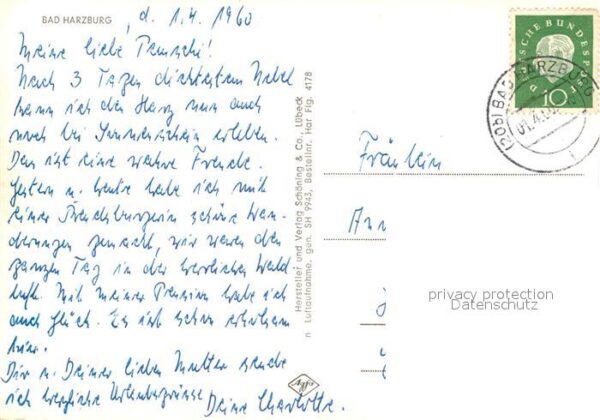 BAD HARZBURG , d. 1.4.1960
Meine liebe Pauschi!
Nach 3 Tagen dichtestem Nebel
kann ich den Harz nun auch
noch bei Sonnenschein erleben.
Das ist eine wahre Freude.
Gestern u. heute habe ich mit
einer Strassburgerin schöne Wan-
derungen gemacht, wir waren den
ganzen Tag in der herrlichen Wald-
luft. Mit meiner Pension habe ich
auch Glück. Es ist schon erholsam
hier.
Dir u. Deiner lieben Mutter sende
ich herzliche Urlaubsgrüsse
Deine Charlotte.
Hersteller und Verlag Schöning & Co., Lübeck
n Luftaufnahme, gen. SH 9943, Bestellnr. Har Flg. 4178
Agfa
SCHE BUNDESPOST
10
(20b) BAD HARZBURG
01.4.60
Fräulein
Ann
privacy protection
Datenschutz